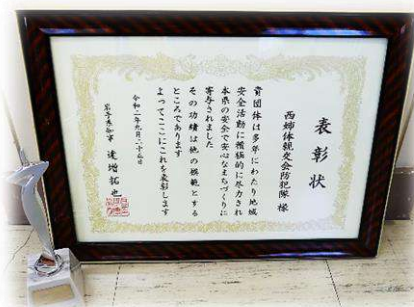 表彰状
西姉体親交会防犯隊 様
貴団体は多年にわたり地域
安全活動に積極的に尽力され
本県の安全で安心なまちづくりに
寄与されました
その功績は他の模範とする
ところであります
よってここにこれを表彰します
令和二年九月二十五日
岩手県知事 達増拓也